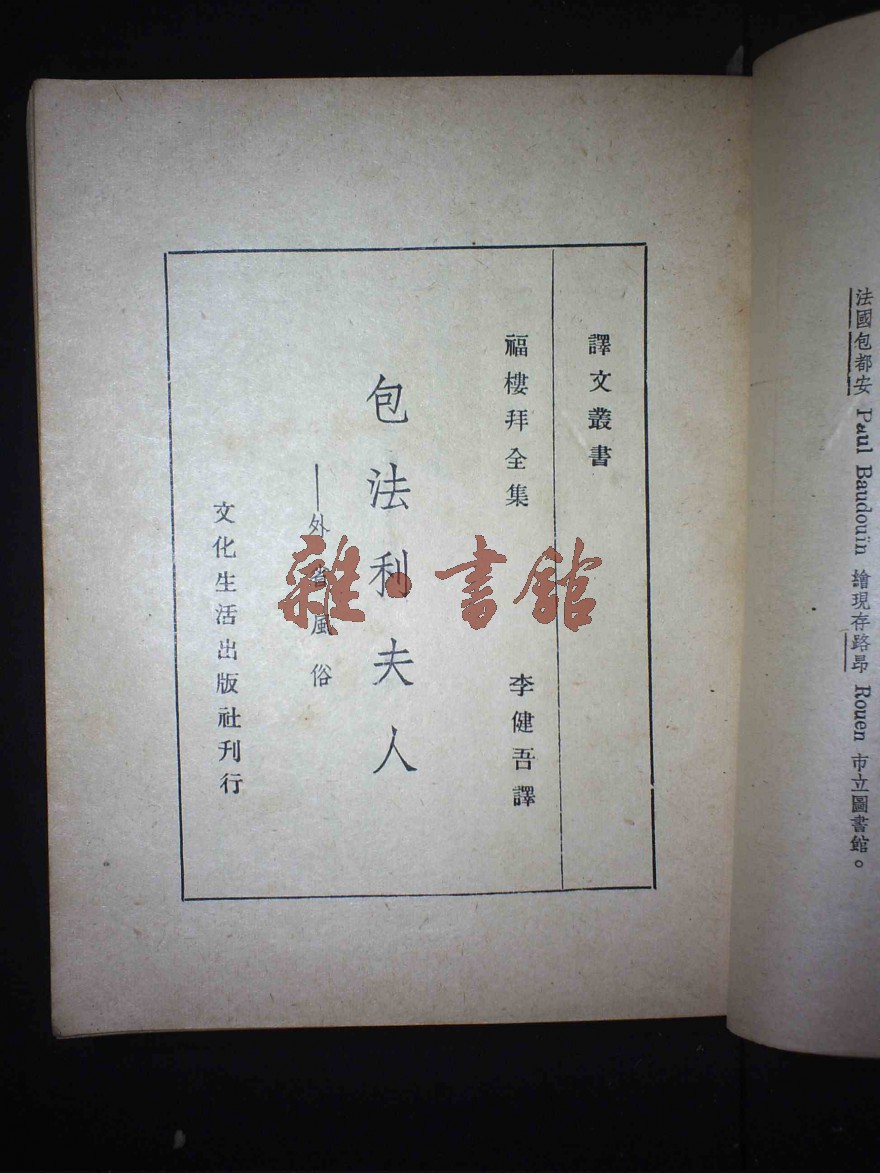 法國包都安 Paul Baudouin 繪現存路昂 Rouen 市立圖書館。
譯文叢書
福樓拜全集
李健吾譯
包法利夫人
——外省風俗
文化生活出版社刊行
雜·書館